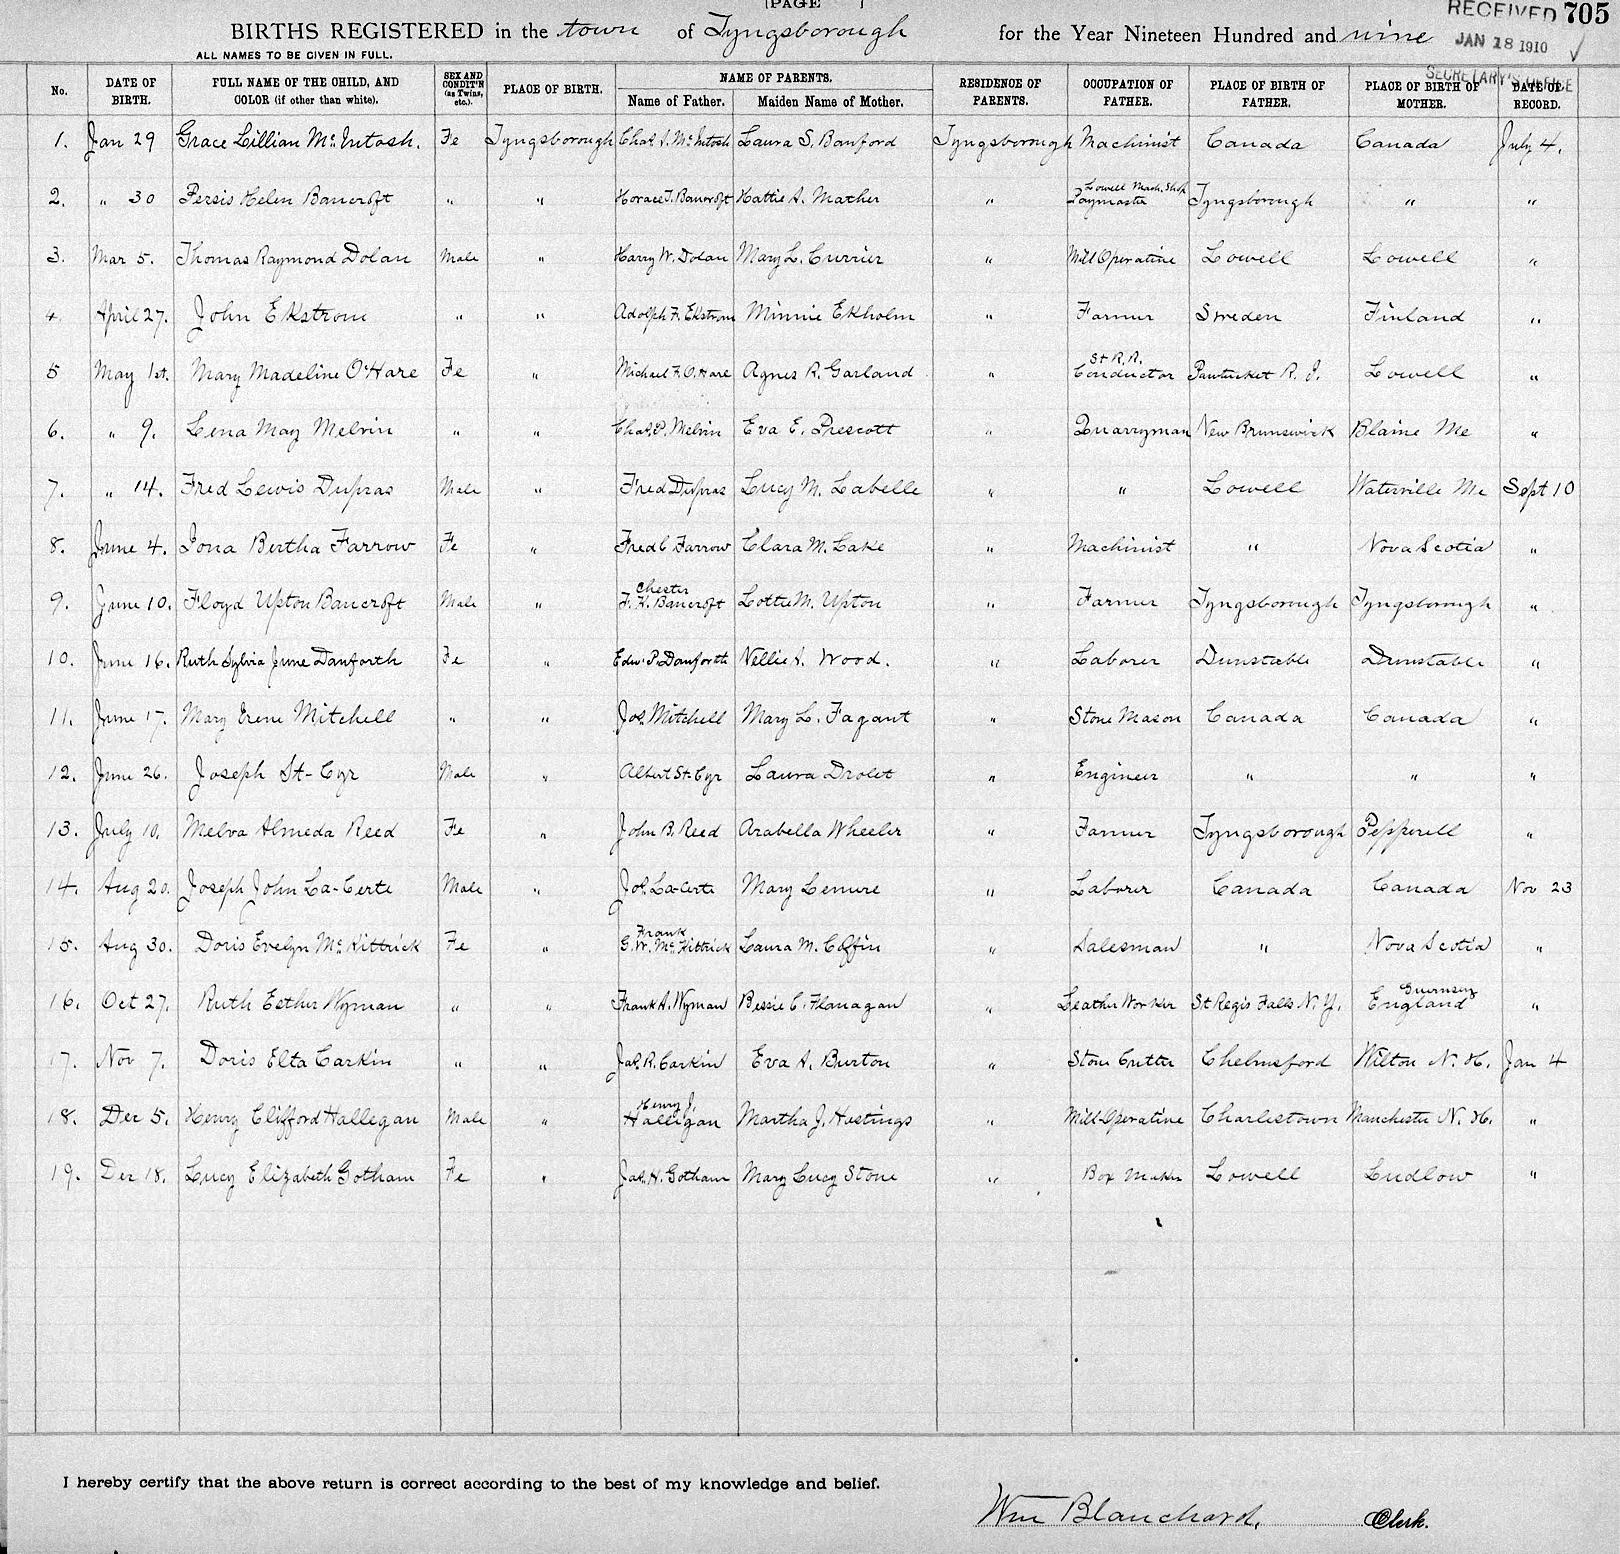 PAGE
RECEIVED 705
BIRTHS REGISTERED in the town of Tyngsborough for the Year Nineteen Hundred and nine
JAN 18 1910
ALL NAMES TO BE GIVEN IN FULL.
SECRETARY'S OFFICE
No. DATE OF BIRTH. FULL NAME OF THE CHILD, AND COLOR (if other than white). SEX AND CONDIT'N (as Twins, etc.). PLACE OF BIRTH. NAME OF PARENTS. Name of Father. Maiden Name of Mother. RESIDENCE OF PARENTS. OCCUPATION OF FATHER. PLACE OF BIRTH OF FATHER. PLACE OF BIRTH OF MOTHER. DATE OF RECORD.
1. Jan 29 Grace Lillian McIntosh. Fe Tyngsborough Chas. S. McIntosh Laura S. Banford Tyngsborough Machinist Canada Canada July 4.
2. " 30 Persis Helen Bancroft " " Horace T. Bancroft Hattie A. Mather " Lowell Mach. Shop Paymaster Tyngsborough " "
3. Mar 5. Thomas Raymond Dolan Male " Harry W. Dolan Mary L. Currier " Mill Operative Lowell Lowell "
4. April 27. John Ekstrom " " Adolph F. Ekstrom Minnie Ekholm " Farmer Sweden Finland "
5 May 1st. Mary Madeline O'Hare Fe " Michael F. O'Hare Agnes R. Garland " St R. R. Conductor Pawtucket R. I. Lowell "
6. " 9. Lena May Melvin " " Chas. P. Melvin Eva E. Prescott " Quarryman New Brunswick Blaine Me "
7. " 14. Fred Lewis Dupras Male " Fred Dupras Lucy M. Labelle " " Lowell Waterville Me Sept 10
8. June 4. Iona Bertha Farrow Fe " Fred C Farrow Clara M. Lake " Machinist " Nova Scotia "
9. June 10. Floyd Upton Bancroft Male " Chester F. K. Bancroft Lotta M. Upton " Farmer Tyngsborough Tyngsborough "
10. June 16. Ruth Sylvia June Danforth Fe " Edw. P. Danforth Nellie A. Wood. " Laborer Dunstable Dunstable "
11. June 17. Mary Irene Mitchell " " Jos. Mitchell Mary L. Fagant " Stone Mason Canada Canada "
12. June 26. Joseph St-Cyr Male " Albert St-Cyr Laura Drolet " Engineer " " "
13. July 10. Melva Almeda Reed Fe " John B. Reed Arabella Wheeler " Farmer Tyngsborough Pepperell "
14. Aug 20. Joseph John La-Certe Male " Jos. La-Certe Mary Lemire " Laborer Canada Canada Nov 23
15. Aug 30. Doris Evelyn McKittrick Fe " Frank G. W. McKittrick Laura M. Coffin " Salesman " Nova Scotia "
16. Oct 27. Ruth Esther Wyman " " Frank A. Wyman Bessie C. Flanagan " Leather Worker St Regis Falls N. Y. Guernsey England "
17. Nov 7. Doris Elta Carkin " " Jas. R. Carkin Eva A. Burton " Stone Cutter Chelmsford Wilton N. H. Jan 4
18. Dec 5. Henry Clifford Hallegan Male " Henry J. Halligan Martha J. Hastings " Mill Operative Charlestown Manchester N. H. "
19. Dec 18. Lucy Elizabeth Gotham Fe " Jas. H. Gotham Mary Lucy Stone " Box Maker Lowell Ludlow "
I hereby certify that the above return is correct according to the best of my knowledge and belief.
Wm Blanchard, Clerk.